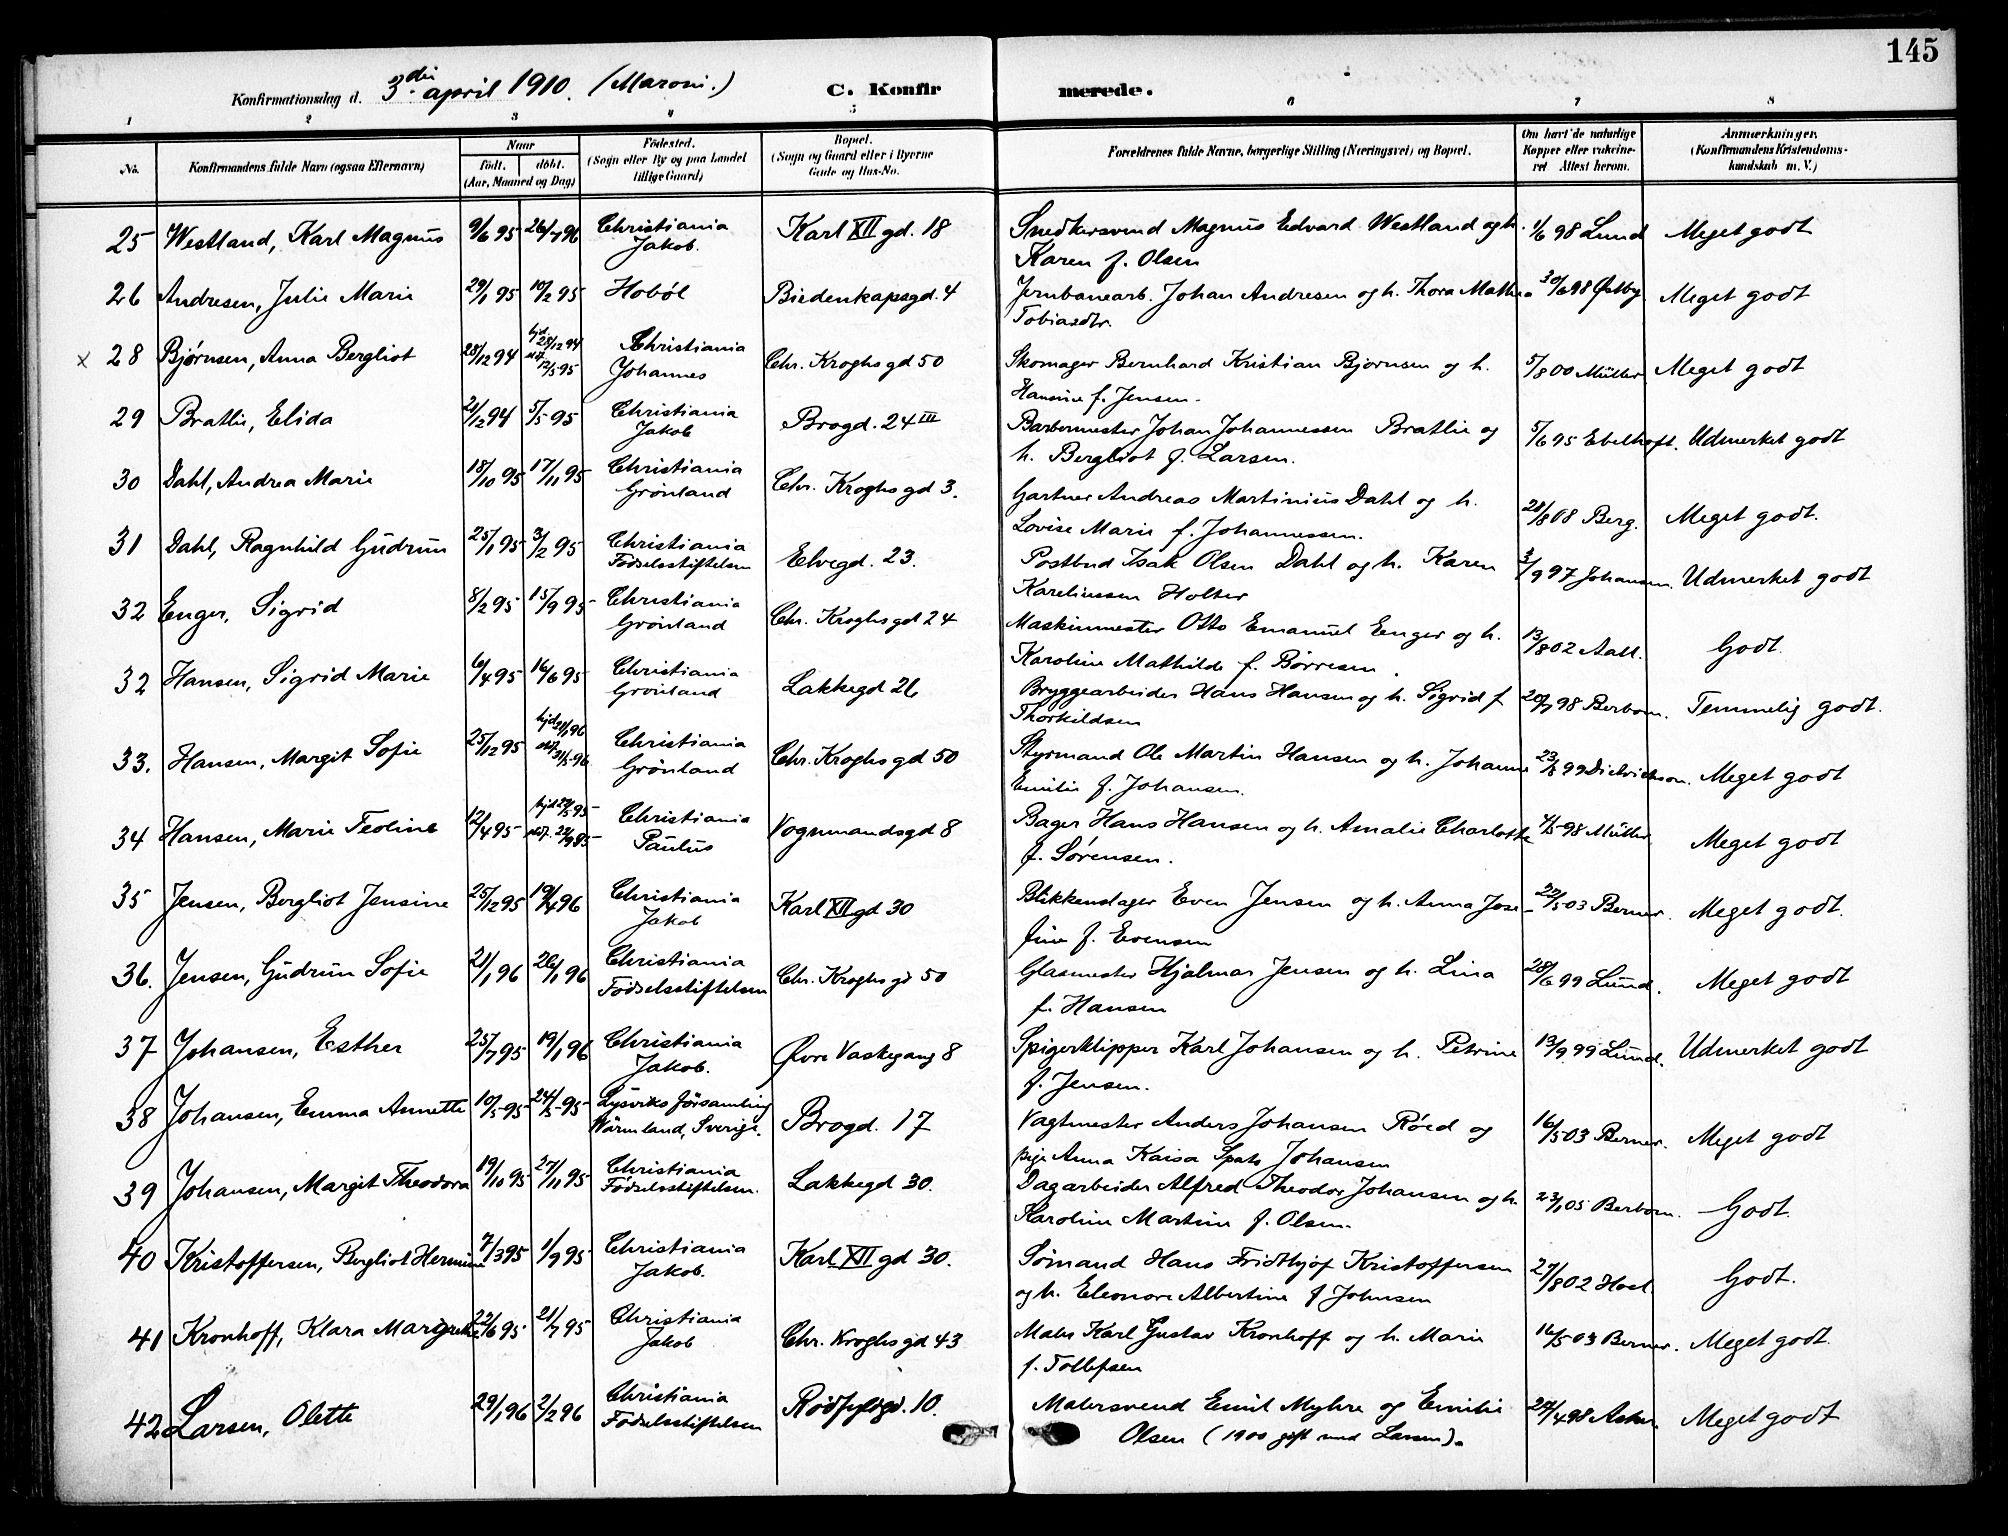 145
Konfirmationsdag d. 3die april 1910. (Maroni.) C. Konfirmerede.
1 2 3 4 5 6 7 8
No. Konfirmandens fulde Navn (ogsaa Efternavn) Naar født. døbt. (Aar, Maaned og Dag) Fødested. (Sogn eller By og paa Landet tillige Gaard) Bopæl. (Sogn og Gaard eller i Byerne Gade og Hus-No. Forældrenes fulde Navne, borgerlige Stilling (Næringsvei) og Bopæl. Om havt de naturlige Kopper eller vakcineret Attest herom. Anmærkninger. (Konfirmandens Kristendomskundskab m. V.)
25 Westland, Karl Magnus 9/6 95 26/7 96 Christiania Jakob. Karl XII gd. 18 Snedkersvend Magnus Edvard Westland og h. Karen f. Olsen 1/6 98 Lund Meget godt
26 Andresen, Julie Marie 29/1 95 10/2 95 Hobøl Biedenkapsgd. 4 Jernbanearb. Johan Andresen og h. Thora Mathea Tobiasdtr. 30/6 98 Østby Meget godt
x 28 Bjørnsen, Anna Bergliot 28/12 94 hjd. 28/12 94 12/5 95 Christiania Johannes Chr. Kroghs gd 50 Skomager Bernhard Kristian Bjørnsen og h. Hansine f. Jensen. 5/8 00 Müller Meget godt
29 Bratlie, Elida 21/12 94 5/5 95 Christiania Jakob Brogd. 24 III Barbermester Johan Johannessen Bratlie og h. Bergliot f. Larsen. 5/6 95 Ebelhoft. Udmerket godt
30 Dahl, Andrea Marie 18/10 95 17/11 95 Christiania Grönland Chr. Kroghs gd 3. Gartner Andreas Martinius Dahl og h. Lovise Marie f. Johannessen. 28/8 08 Berg. Meget godt.
31 Dahl, Ragnhild Gudrun 25/1 95 3/2 95 Christiania Födselsstiftelsen Elvegd. 23. Postbud Isak Olsen Dahl og h. Karen Kareliussen Holter 3/9 97 Johansen. Udmerket godt
32 Enger, Sigrid 8/2 95 15/9 95 Christiania Grönland Chr. Kroghs gd 24 Maskinmester Otto Emanuel Enger og h. Karoline Mathilde f. Børresen. 13/8 02 Aall. Godt.
32 Hansen, Sigrid Marie 6/4 95 16/6 95 Christiania Grönland Lakkegd 26 Bryggearbeider Hans Hansen og h. Sigrid f Thorkildsen 20/7 98 Berbom. Temmelig godt.
33. Hansen, Margit Sofie 25/12 95 31/5 96 Christiania Grönland Chr. Kroghs gd 50 Styrmand Ole Martin Hansen og h. Johanne Emilie f. Johansen. 99 Dietrichson. Meget godt
34 Hansen, Marie Teoline 12/4 95 Christiania Paulus Vognmandsgd 8 Bager Hans Hansen og h. Amalie Charlotte f. Sørensen. 98 Müller Meget godt
35 Jensen, Bergliot Jensine 25/12 95 19/4 96 Christiania Jakob Karl XII gd 30 Blikkenslager Even Jensen og h. Anna Josefine f. Evensen 22/5 03 Berner. Meget godt.
36. Jensen, Gudrun Sofie 21/1 96 26/1 96 Christiania Födselsstiftelsen Chr. Kroghs gd 50 Glasmester Hjalmar Jensen og h. Lina f. Hansen 28/6 99 Lund. Meget godt
37 Johansen, Esther 25/7 95 19/1 96 Christiania Jakob. Øvre Vaskegang 8 Spigerklipper Karl Johansen og h. Petrine f. Jensen. 13/9 99 Lund. Udmerket godt
38 Johansen, Emma Annette 10/5 95 24/5 95 Lysviks församling Wärmland, Sverige. Brogd. 17 Vagtmester Anders Johansen Röed og pige Anna Kaisa Johansen 16/5 03 Berner. Meget godt
39 Johansen, Margit Theodora 19/10 95 27/11 95 Christiania Födselsstiftelsen. Lakkegd 30. Dagarbeider Alfred Theodor Johansen og h. Karoline Martine f. Olsen. 23/1 05 Berbom. Godt.
40 Kristoffersen, Bergliot Hermine 7/3 95 1/9 95 Christiania Jakob. Karl XII gd 30. Sömand Hans Fridthjof Kristoffersen og h. Eleonore Albertine f Johnsen 27/8 02 Hoel. Godt.
41 Kronhoff, Klara Margrethe 22/6 95 21/7 95 Christiania Jakob Chr. Kroghs gd 43 Maler Karl Gustav Kronhoff og h. Marie f. Tollefsen 16/5 03 Berner. Meget godt.
42 Larsen, Olette 29/1 96 2/2 96 Christiania Födselsstiftelsen Rødfyldgd. 10. Malersvend Emil Myhre og Emilie Olsen (1900 gift med Larsen). 27/4 98 Asker. Meget godt